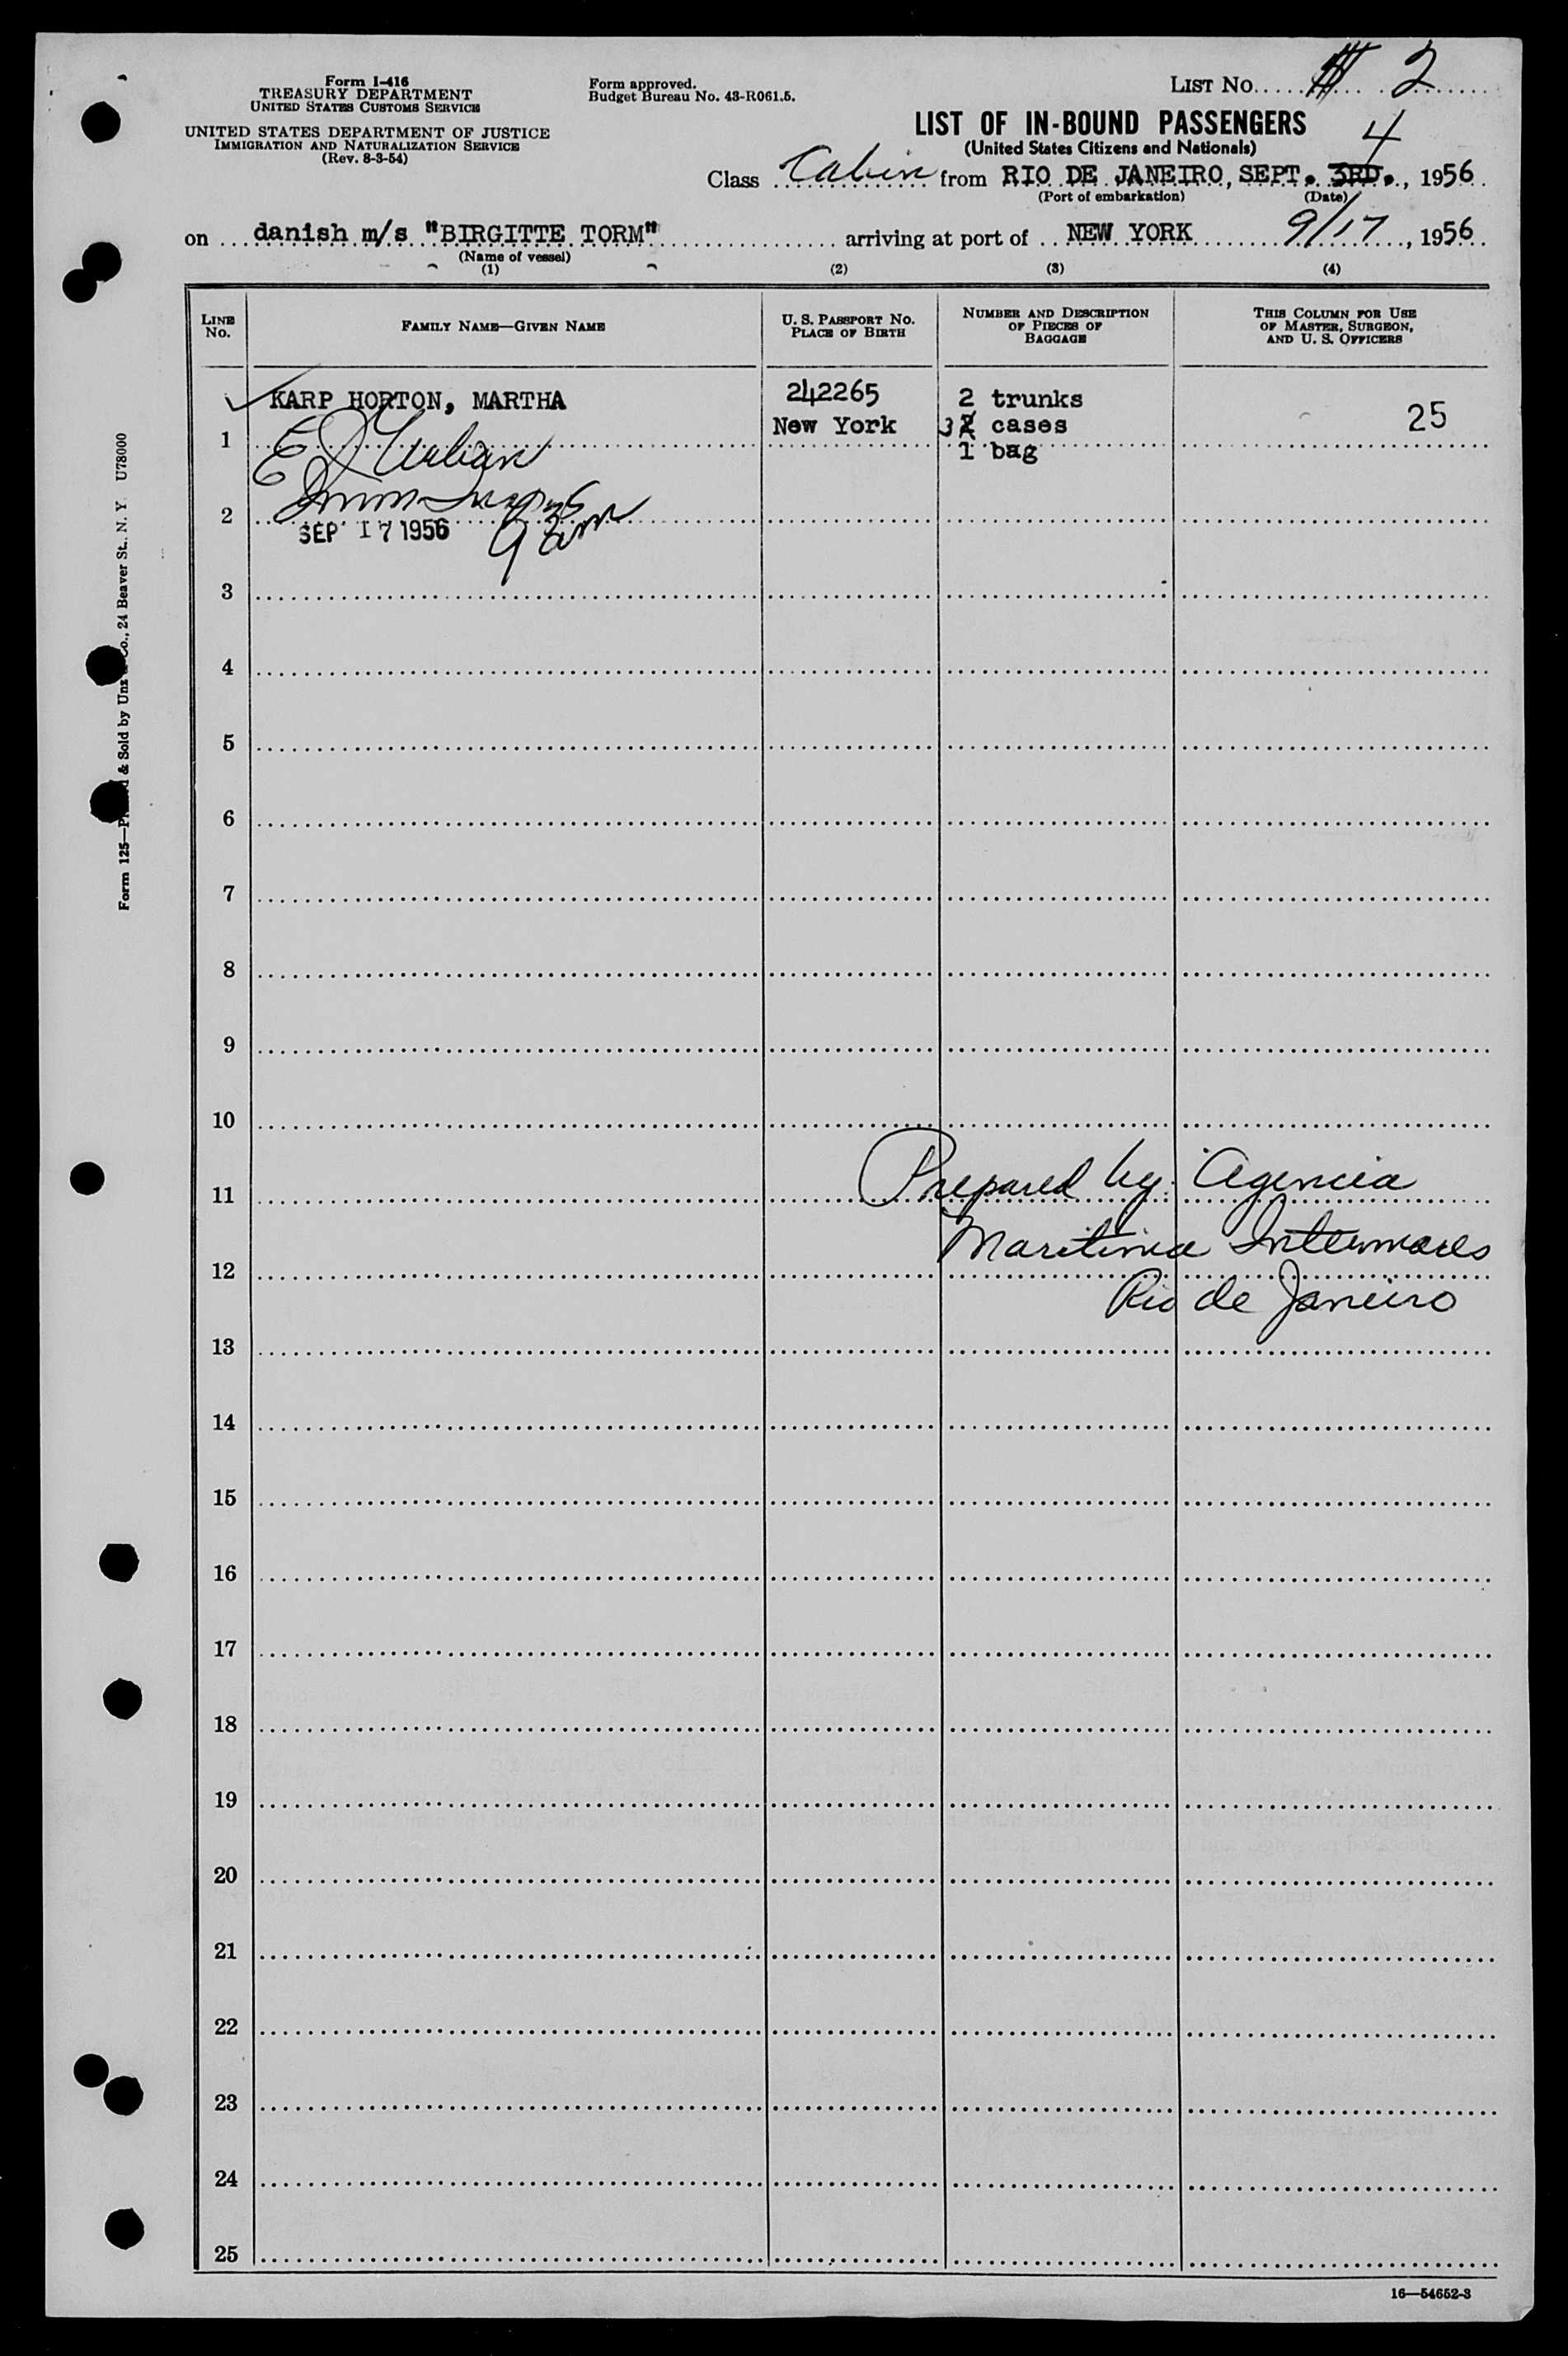 Form I-416
TREASURY DEPARTMENT
UNITED STATES CUSTOMS SERVICE
UNITED STATES DEPARTMENT OF JUSTICE
IMMIGRATION AND NATURALIZATION SERVICE
(Rev. 8-3-54)
Form approved.
Budget Bureau No. 43-R061.5.
LIST NO. 2
LIST OF IN-BOUND PASSENGERS
(United States Citizens and Nationals)
4
Class Cabin from RIO DE JANEIRO, SEPT. 3RD., 1956
(Port of embarkation) (Date)
on danish m/s "BIRGITTE TORM" arriving at port of NEW YORK 9/17, 1956
(Name of vessel)
(1) (2) (3) (4)
LINE NO. FAMILY NAME—GIVEN NAME U. S. PASSPORT NO. PLACE OF BIRTH NUMBER AND DESCRIPTION OF PIECES OF BAGGAGE THIS COLUMN FOR USE OF MASTER, SURGEON, AND U. S. OFFICERS
KARP HORTON, MARTHA 242265 2 trunks
New York 3 2 cases 25
1 1 bag
2
SEP 17 1956
3
4
5
6
7
8
9
10
11 Prepared by Agencia
Maritima Intermares
12
Rio de Janeiro
13
14
15
16
17
18
19
20
21
22
23
24
25
16—54652-3
Form 125— & Sold by Co., 24 Beaver St., N. Y. U78000